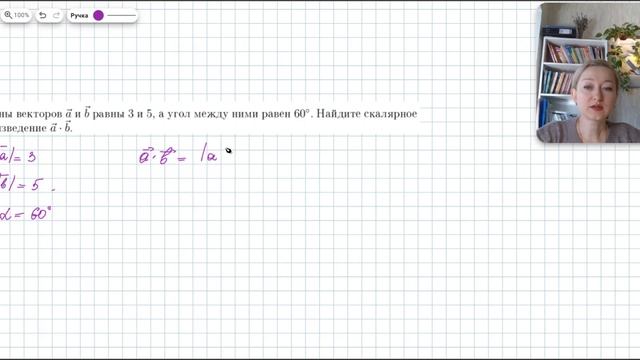 100%
Ручка
ны векторов a⃗ и b⃗ равны 3 и 5, а угол между ними равен 60°. Найдите скалярное
изведение a⃗ · b⃗.
a⃗| = 3
b⃗| = 5 .
α = 60°
a⃗ · b⃗ = |a